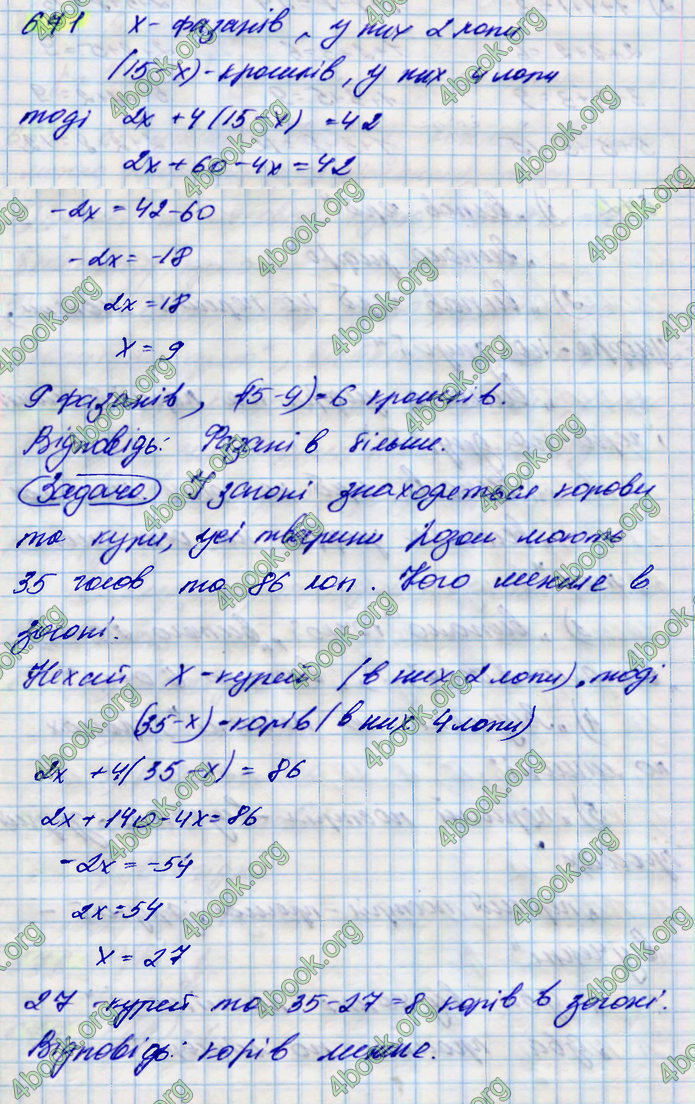 671 х - фазанів, у них 2 лапи
(15-х) - кроликів, у них 4 лапи
тоді 2х + 4(15-х) = 42
2х + 60 - 4х = 42
-2х = 42-60
-2х = -18
2х = 18
х = 9
9 фазанів, (15-9)=6 кроликів.
Відповідь: Фазанів більше.
Задача. У загоні знаходяться корови
та кури, усі тварини разом мають
35 голов та 86 лап. Кого менше в
загоні.
Нехай х - курей (в них 2 лапи), тоді
(35-х) - корів (в них 4 лапи)
2х + 4(35-х) = 86
2х + 140 - 4х = 86
-2х = -54
2х = 54
х = 27
27 - курей та 35-27=8 корів в загоні.
Відповідь: корів менше.
4book.org